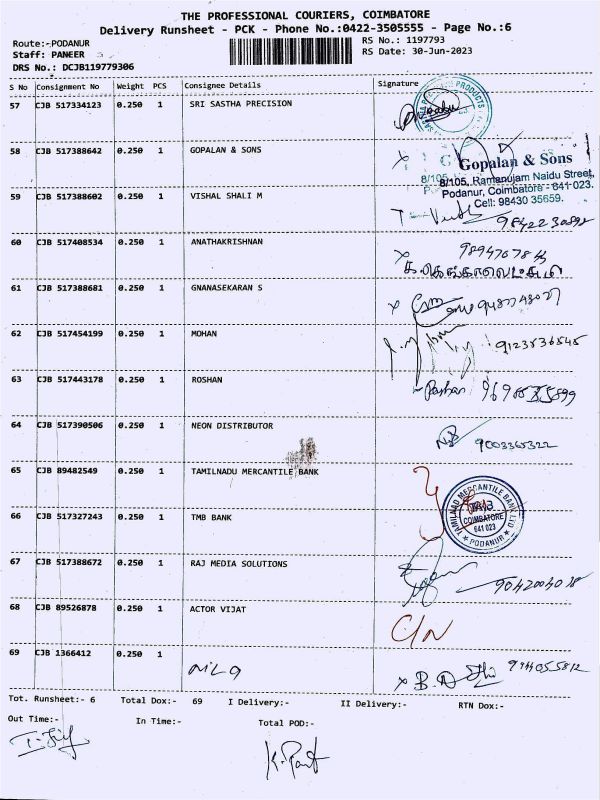 THE PROFESSIONAL COURIERS, COIMBATORE
Delivery Runsheet - PCK - Phone No.:0422-3505555 - Page No.:6
Route:-PODANUR
RS No.: 1197793
Staff: PANEER S
RS Date: 30-Jun-2023
DRS No.: DCJB119779306
S No Consignment No Weight PCS Consignee Details Signature
57 CJB 517334123 0.250 1 SRI SASTHA PRECISION
58 CJB 517388642 0.250 1 GOPALAN & SONS
Gopalan & Sons
8/105, Ramanujam Naidu Street,
Podanur, Coimbatore - 641 023.
Cell: 98430 35659.
59 CJB 517388602 0.250 1 VISHAL SHALI M
9842230892
60 CJB 517408534 0.250 1 ANATHAKRISHNAN
61 CJB 517388681 0.250 1 GNANASEKARAN S
62 CJB 517454199 0.250 1 MOHAN
9123536545
63 CJB 517443178 0.250 1 ROSHAN
Roshan
64 CJB 517390506 0.250 1 NEON DISTRIBUTOR
9003365322
65 CJB 89482549 0.250 1 TAMILNADU MERCANTILE BANK
TAMILNAD MERCANTILE BANK LTD
COIMBATORE
641 023
PODANUR
66 CJB 517327243 0.250 1 TMB BANK
67 CJB 517388672 0.250 1 RAJ MEDIA SOLUTIONS
9042004038
68 CJB 89526878 0.250 1 ACTOR VIJAT
C/N
69 CJB 1366412 0.250 1
Tot. Runsheet:- 6 Total Dox:- 69 I Delivery:- II Delivery:- RTN Dox:-
Out Time:- In Time:- Total POD:-